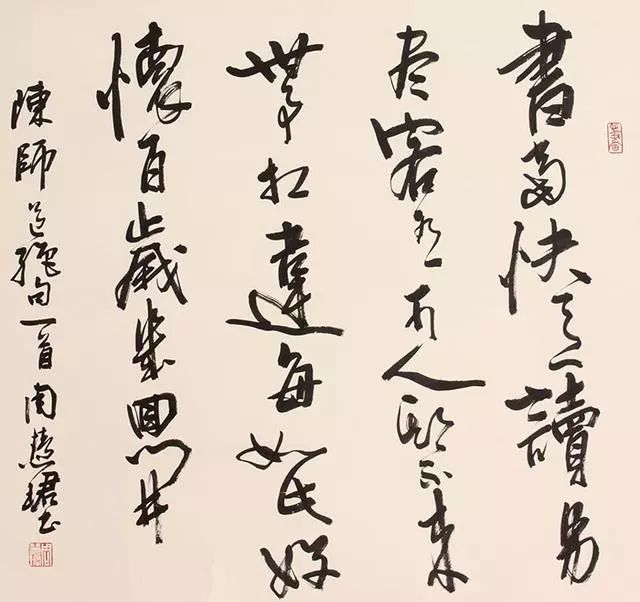 書當快意讀易
盡客有可人期不來
世事相違每如此好
懷百歲幾回開
陳師道絕句一首周慧珺書